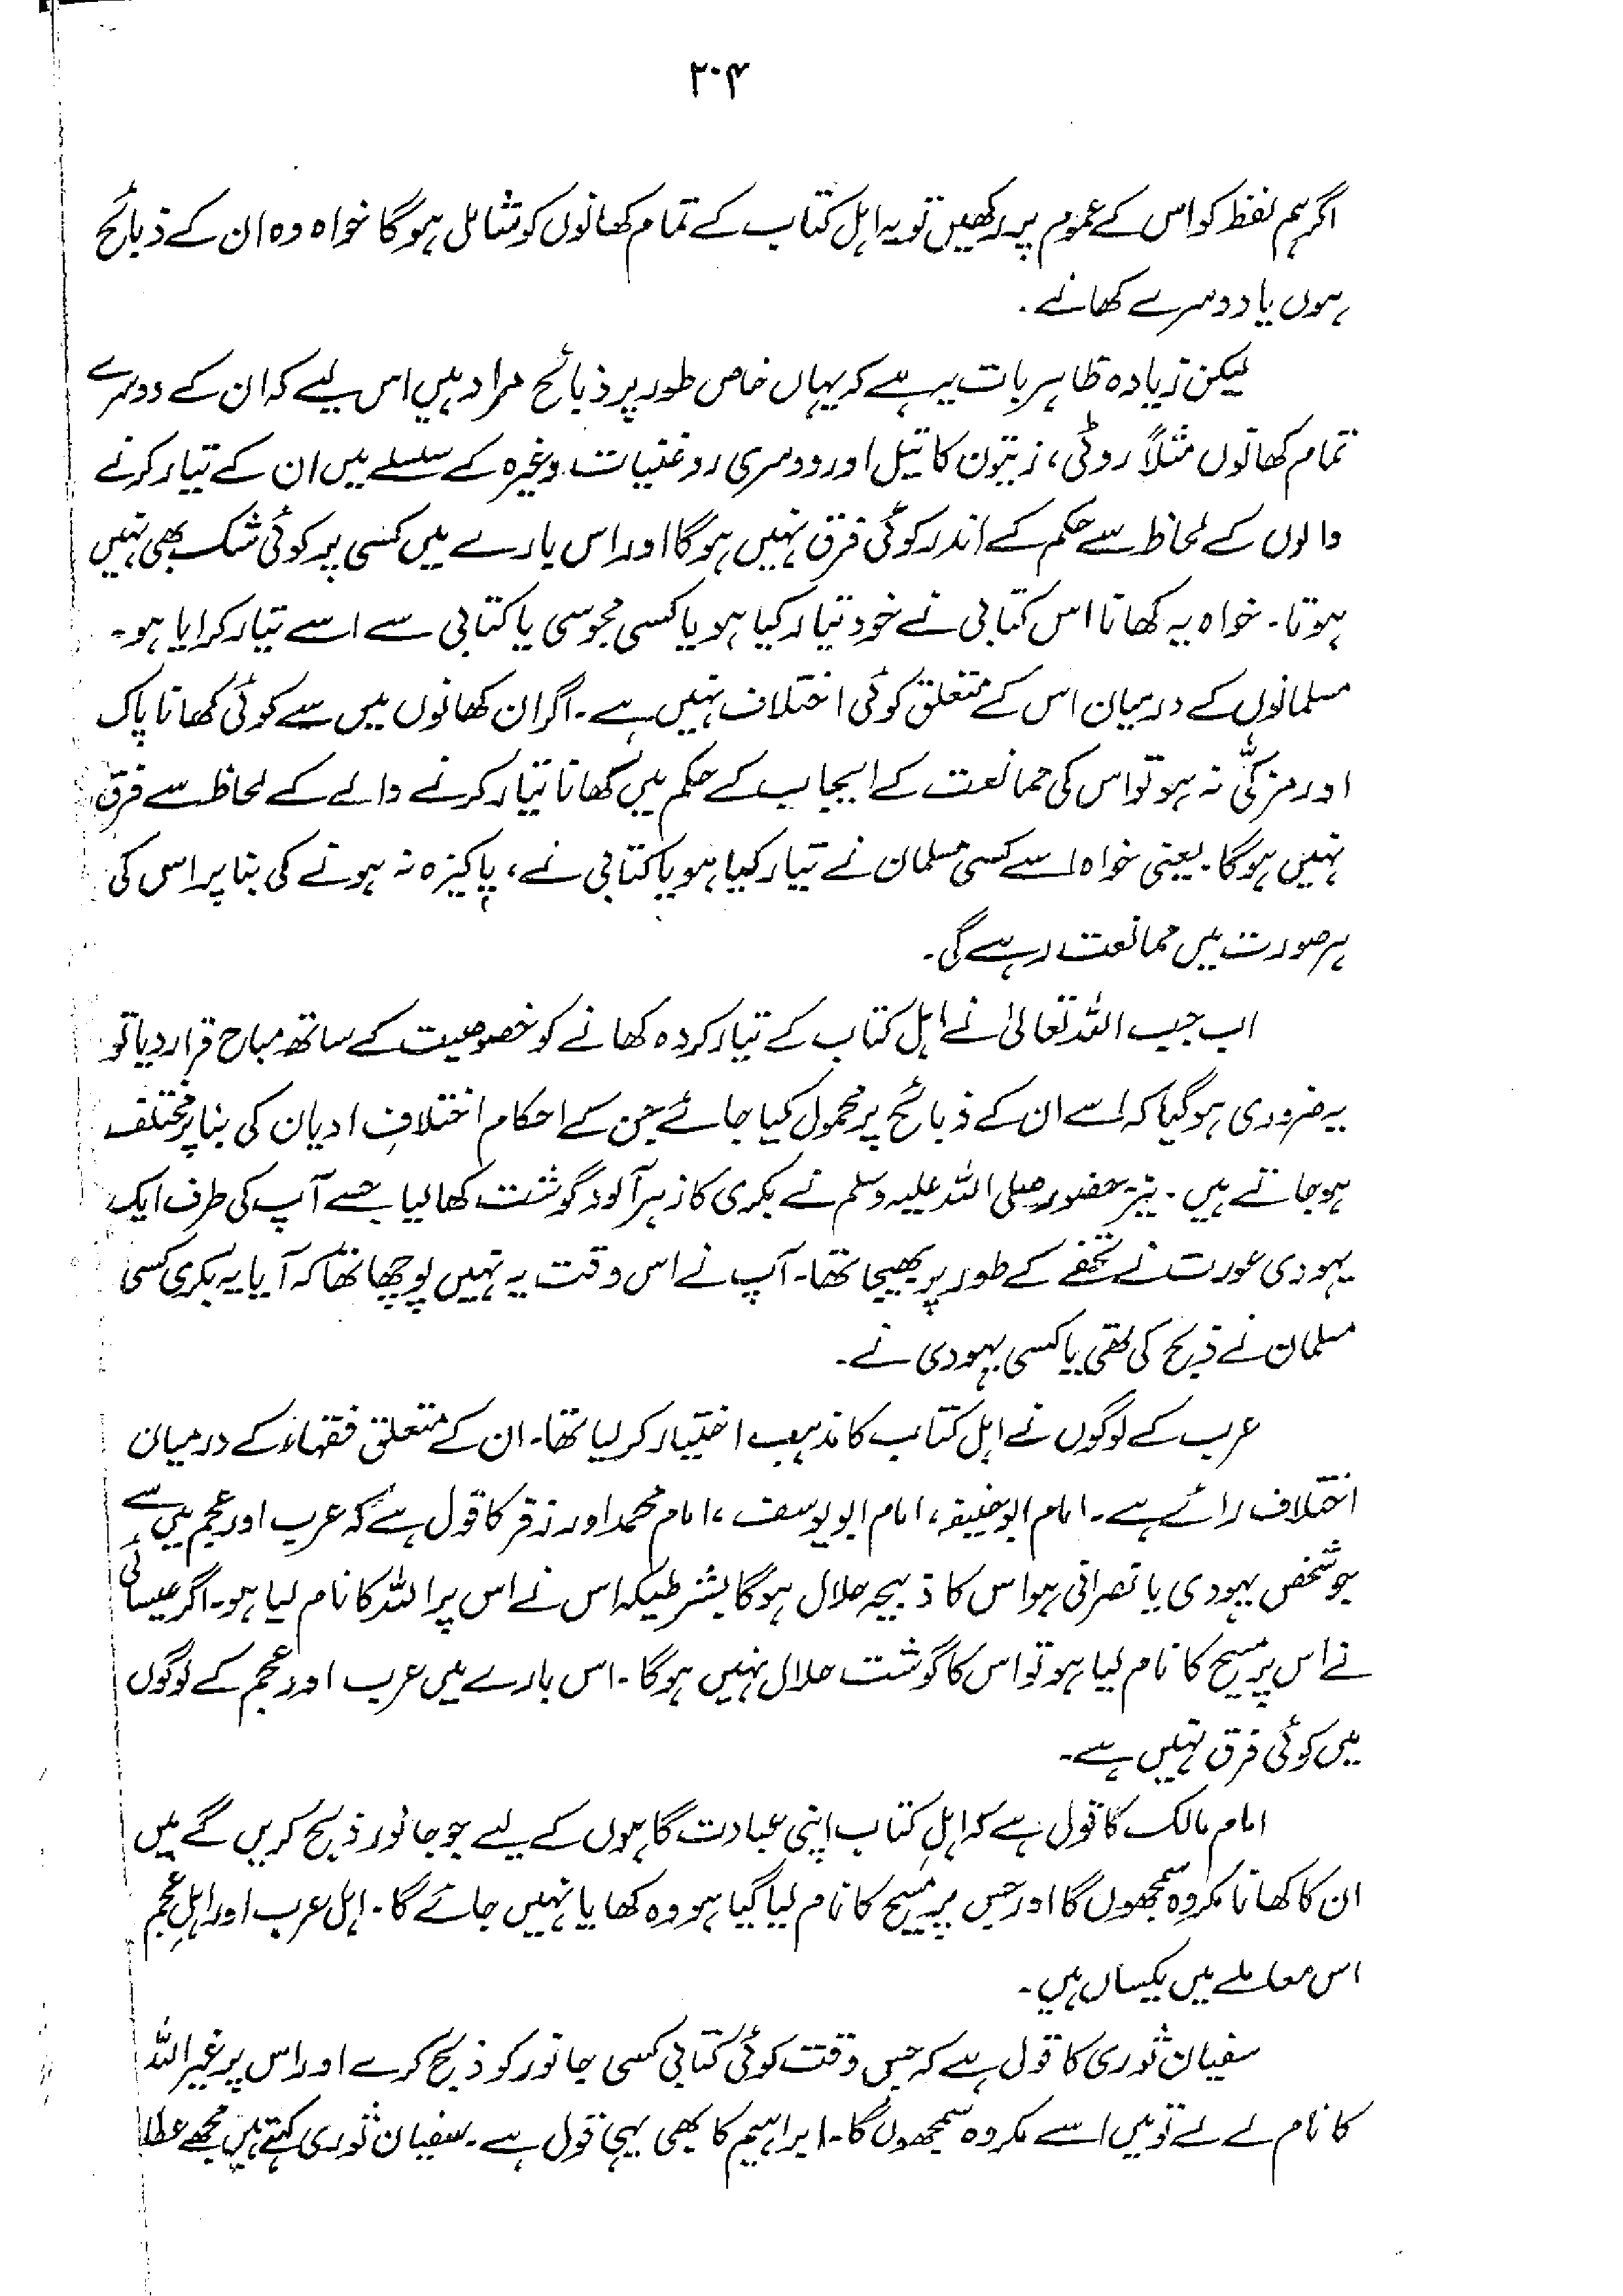 ۲۰۴
اگر ہم لفظ کو اس کے عموم پر رکھیں تو یہ اہل کتاب کے تمام کھانوں کو شامل ہوگا خواہ وہ ان کے ذبائح
ہوں یا دوسرے کھانے۔
لیکن زیادہ ظاہر بات یہ ہے کہ یہاں خاص طور پر ذبائح مراد ہیں اس لیے کہ ان کے دوسرے
تمام کھانوں مثلاً روٹی، زیتون کا تیل اور دوسری روغنیات وغیرہ کے سلسلے میں ان کے تیار کرنے
والوں کے لحاظ سے حکم کے اندر کوئی فرق نہیں ہوگا اور اس بارے میں کسی پر کوئی شک بھی نہیں
ہوتا۔ خواہ یہ کھانا اس کتابی نے خود تیار کیا ہو یا کسی مجوسی یا کتابی سے اسے تیار کرایا ہو۔
مسلمانوں کے درمیان اس کے متعلق کوئی اختلاف نہیں ہے۔ اگر ان کھانوں میں سے کوئی کھانا پاک
اور مزکّٰی نہ ہو تو اس کی ممانعت کے ایجاب کے حکم میں کھانا تیار کرنے والے کے لحاظ سے فرق
نہیں ہوگا۔ یعنی خواہ اسے کسی مسلمان نے تیار کیا ہو یا کتابی نے، پاکیزہ نہ ہونے کی بنا پر اس کی
ہر صورت میں ممانعت رہے گی۔
اب جب اللہ تعالیٰ نے اہل کتاب کے تیار کردہ کھانے کو خصوصیت کے ساتھ مباح قرار دیا تو
یہ ضروری ہوگیا کہ اسے ان کے ذبائح پر محمول کیا جائے جن کے احکام اختلافِ ادیان کی بنا پر مختلف
ہو جاتے ہیں۔ نیز حضور صلی اللہ علیہ وسلم نے بکری کا زہر آلود گوشت کھا لیا جسے آپ کی طرف ایک
یہودی عورت نے تحفے کے طور پر بھیجا تھا۔ آپ نے اس وقت یہ نہیں پوچھا تھا کہ آیا یہ بکری کسی
مسلمان نے ذبح کی تھی یا کسی یہودی نے۔
عرب کے لوگوں نے اہل کتاب کا مذہب اختیار کر لیا تھا۔ ان کے متعلق فقہاء کے درمیان
اختلاف رائے ہے۔ امام ابو حنیفہ، امام ابو یوسف، امام محمد اور زفر کا قول ہے کہ عرب اور عجم میں سے
جو شخص یہودی یا نصرانی ہو اس کا ذبیحہ حلال ہوگا بشرطیکہ اس نے اس پر اللہ کا نام لیا ہو۔ اگر عیسائی
نے اس پر مسیح کا نام لیا ہو تو اس کا گوشت حلال نہیں ہوگا۔ اس بارے میں عرب اور عجم کے لوگوں
میں کوئی فرق نہیں ہے۔
امام مالک کا قول ہے کہ اہلِ کتاب اپنی عبادت گاہوں کے لیے جو جانور ذبح کریں گے میں
ان کا کھانا مکروہ سمجھوں گا اور جس پر مسیح کا نام لیا گیا ہو وہ کھایا نہیں جائے گا۔ اہل عرب اور اہلِ عجم
اس معاملے میں یکساں ہیں۔
سفیان ثوری کا قول ہے کہ جس وقت کوئی کتابی کسی جانور کو ذبح کرے اور اس پر غیر اللہ
کا نام لے لے تو میں اسے مکروہ سمجھوں گا۔ ابراہیم کا بھی یہی قول ہے۔ سفیان ثوری کہتے ہیں مجھے عطا